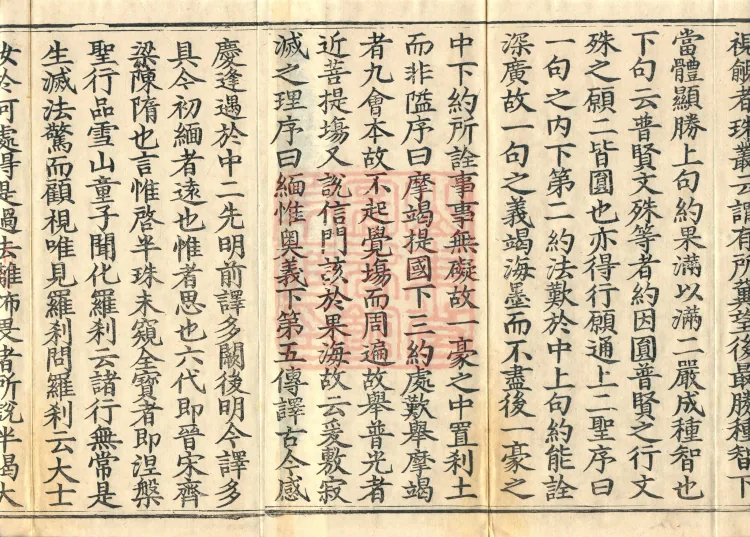 視觖者珠叢云謂有所冀望後最勝種智下
當體顯勝上句約果滿以滿二嚴成種智也
下句云普賢文殊等者約因圓普賢之行文
殊之願二皆圓也亦得行願通上二聖序曰
一句之內下第二約法歎於中上句約能詮
深廣故一句之義竭海墨而不盡後一豪之
中下約所詮事事無礙故一豪之中置剎土
而非隘序曰摩竭提國下三約處歎舉摩竭
者九會本故不起覺場而周遍故舉普光者
近菩提場又說信門該於果海故云爰敷寂
滅之理序曰緬惟奧義下第五傳譯古今感
慶逢遇於中二先明前譯多闕後明今譯多
具今初緬者遠也惟者思也六代即晉宋齊
梁陳隋也言惟啓半珠未窺全寶者即涅槃
聖行品雪山童子聞化羅剎云諸行無常是
生滅法驚而顧視唯見羅剎問羅剎云大士
汝於何處得是過去離怖畏者所說半偈大